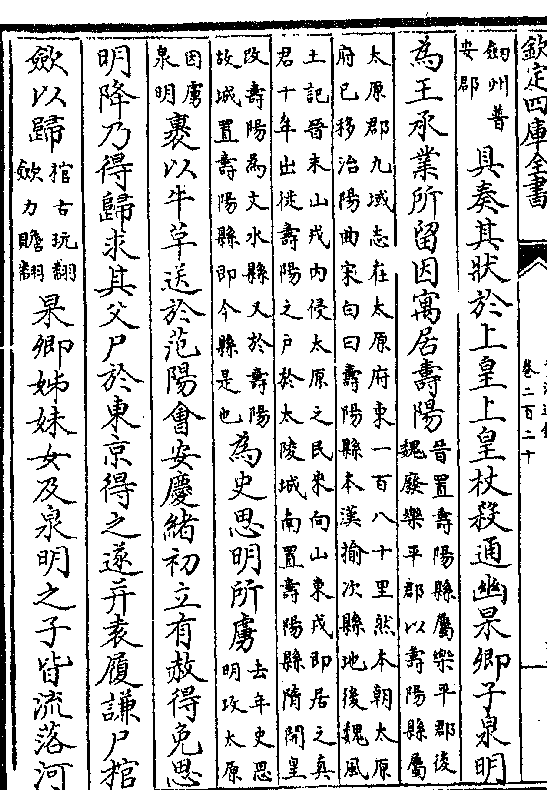 欽定四庫全書
卷二百二十
劒州普
安郡
具奏其狀於上皇上皇杖殺通幽杲卿子泉明
為王承業所留因寓居壽陽
晉置壽陽縣屬樂平郡後
魏廢樂平郡以壽陽縣屬
太原郡九域志在太原府東一百八十里然本朝太原
府已移治陽曲宋白曰壽陽縣本漢榆次縣地後魏風
土記晉末山戎内侵太原之民來向山東戎即居之真
君十年出徙壽陽之戶於太陵城南置壽陽縣隋開皇
改壽陽為文水縣又於壽陽
故城置壽陽縣即今縣是也
為史思明所虜
去年史思
明攻太原
因虜
泉明
裹以牛草送於范陽會安慶緒初立有赦得免思
明降乃得歸求其父尸於東京得之遂并袁履謙尸棺
歛以歸
棺古玩翻
歛力贍翻
杲卿姊妹女及泉明之子皆流落河